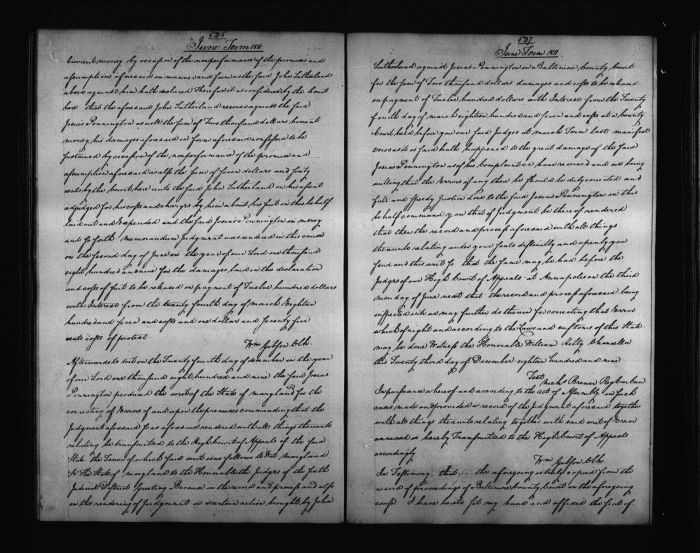 June Term 1811
Current money by occasion of the nonperformance of the promises and
assumptions aforesaid in manner and form as the said John Sutherland
above against him hath declared Therefore it is considered by the Court
here that the aforesaid John Sutherland recover against the said
Josias Pennington as well the sum of Two thousand dollars current
money his damages aforesaid in form aforesaid confessed to be
sustained by occasion of the nonperformance of the promises and
assumptions aforesaid as also the sum of dollars and
cents by the Court here unto the said John Sutherland on his assent
adjudged for his costs and charges by him about his suit in this behalf
laid out and expended and the said Josias Pennington in mercy
and so forth Memorandum Judgment was rendered in this cause
on the second day of June in the year of our Lord one thousand
eight hundred and nine for the damages laid in the declaration
and costs of suit to be released on payment of Twelve hundred dollars
with Interest from the twenty fourth day of March Eighteen
hundred and five and costs and one dollar and seventy five
cents costs of protest
Wm Gibson Clk.
Afterwards to wit on the Twenty fourth day of November in the year
of our Lord one thousand eight hundred and nine the said Josias
Pennington produced the writ of the State of Maryland for the
correcting of Errors of and upon the premises commanding that the
Judgment aforesaid so as aforesaid rendered with all things thereunto
relating be transmitted to the High Court of Appeals of the said
State The Tenor of which said writ is as follows To wit Maryland
Sc The State of Maryland to the Honorable the Judges of the Sixth
Judicial District Greeting Because in the record and process and also
in the rendering of Judgment in a certain action brought by John
527
June Term 1811
Sutherland against Josias Pennington in Baltimore County Court
for the sum of Two thousand dollars damages and costs to be released
on payment of Twelve hundred dollars with Interest from the Twenty
fourth day of March eighteen hundred and five and costs in a County
Court held before you our said Judges at March Term last manifest
Error as it is said hath happened to the great damage of the said
Josias Pennington as of his complaint we have received and we being
willing that the Errors if any there be should be duly corrected and
full and speedy Justice done to the said Josias Pennington in this
behalf command you that if Judgment be thereof rendered
that then the record and process aforesaid with all things
thereunto relating under your seals distinctly and openly you
send and this writ so that the same may be had before the
Judges of our High Court of Appeals at Annapolis on the third
monday of June next that the record and process aforesaid being
inspected we may further do therein for correcting that Error
which of right and according to the Laws and customs of this State
may be done Witness the Honorable William Kilty Chancellor
this Twenty third day of December eighteen hundred and nine
Test
Nichs Brewer Reg Cur Can
In pursuance whereof and according to the act of Assembly in such
case made and provided a record of the Judgment aforesaid together
with all things thereunto relating together with said writ of Error
annexed is hereby Transmitted to the High Court of Appeals
accordingly
Wm Gibson Clk.
In Testimony that the aforegoing is truly copied from the
record of proceedings of Baltimore County Court in the aforegoing
cause I have hereto set my hand and affixed the seal of